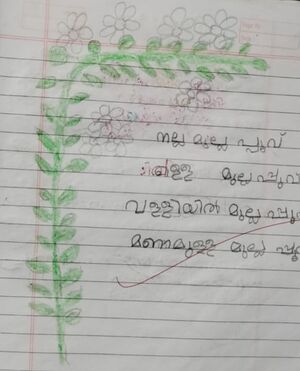 നല്ല മുല്ല പ്പൂവ്
മുല്ല പ്പൂവ
വള്ളിയിൽ മുല്ല പ്പൂ
മണമുള്ള മുല്ല പ്പൂ